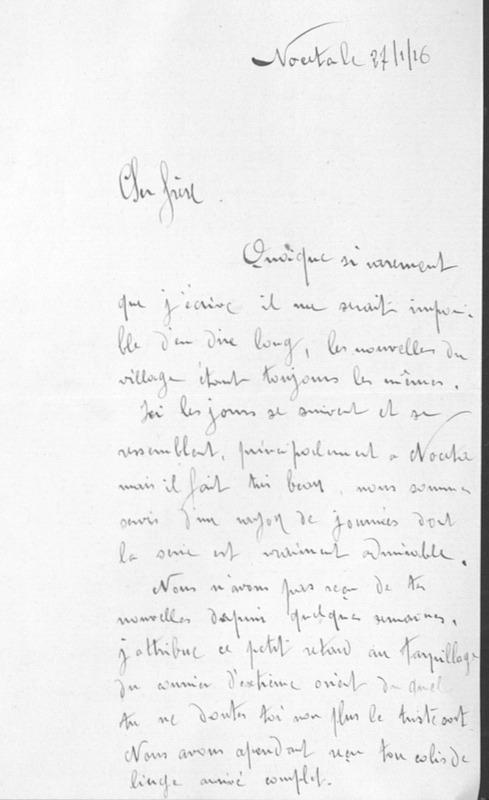 Noceta le 27/1/26
Cher frère.
Quoique si rarement
que j'écrive il me serait impossi-
ble d'en dire long, les nouvelles du
village étant toujours les mêmes.
Ici les jours se suivent et se
ressemblent, principalement a Noceta
mais il fait très beau, nous sommes
servis d'un rayon de journées dont
la serie est vraiment admirable.
Nous n'avons pas reçu de tes
nouvelles depuis quelques semaines,
j'attribue ce petit retard au torpillage
du courrier d'extrême orient du quel
tu ne doutes toi non plus le triste sort
Nous avons cependant reçu ton colis de
linge arrivé complet.